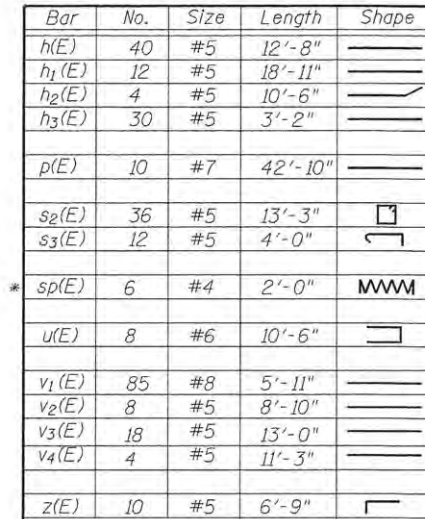 Bar No. Size Length Shape
h(E) 40 #5 12'-8"
h1(E) 12 #5 18'-11"
h2(E) 4 #5 10'-6"
h3(E) 30 #5 3'-2"
p(E) 10 #7 42'-10"
s2(E) 36 #5 13'-3"
s3(E) 12 #5 4'-0"
* sp(E) 6 #4 2'-0"
u(E) 8 #6 10'-6"
v1(E) 85 #8 5'-11"
v2(E) 8 #5 8'-10"
v3(E) 18 #5 13'-0"
v4(E) 4 #5 11'-3"
z(E) 10 #5 6'-9"